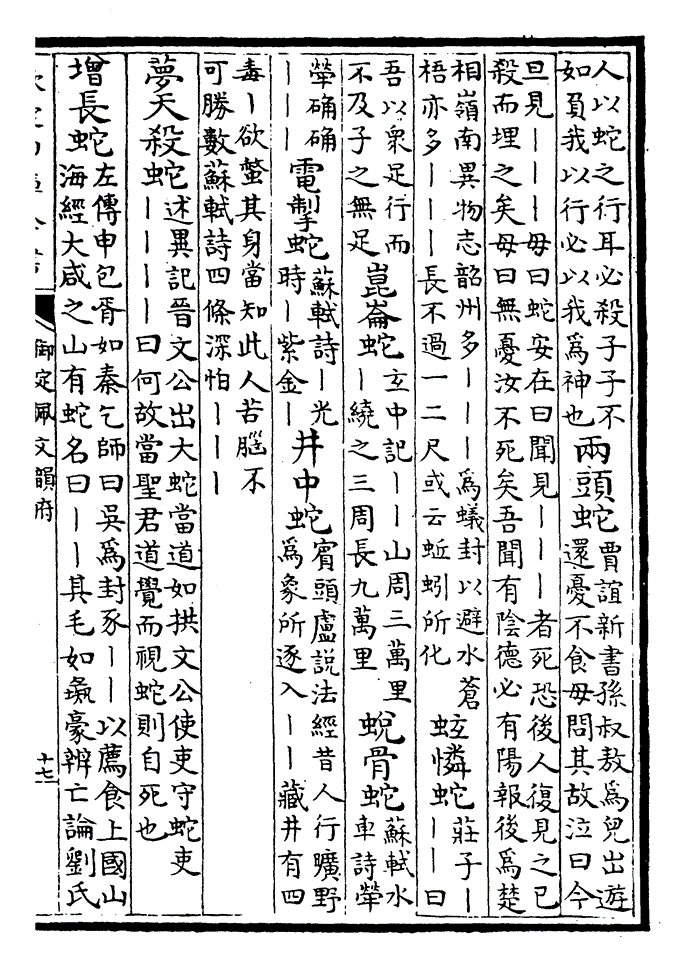 人以蛇之行耳必殺子子不
如負我以行必以我爲神也
兩頭蛇
賈誼新書孫叔敖爲兒出遊
還憂不食母問其故泣曰今
旦見丨丨丨母曰蛇安在曰聞見丨丨丨者死恐後人復見之已
殺而埋之矣母曰無憂汝不死矣吾聞有陰德必有陽報後爲楚
相嶺南異物志韶州多丨丨丨爲蟻封以避水蒼
梧亦多丨丨丨長不過一二尺或云蚯蚓所化
蚿憐蛇
莊子丨
丨丨曰
吾以衆足行而
不及子之無足
崑崙蛇
玄中記丨丨山周三萬里
丨繞之三周長九萬里
蛻骨蛇
蘇軾水
車詩犖
犖确确
丨丨丨
電掣蛇
蘇軾詩丨光
時丨紫金丨
井中蛇
賓頭盧説法經昔人行曠野
爲象所逐入丨丨藏井有四
毒丨欲螫其身當知此人苦腦不
可勝數蘇軾詩四條深怕丨丨丨
夢天殺蛇
述異記晉文公出大蛇當道如拱文公使吏守蛇吏
丨丨丨丨曰何故當聖君道覺而視蛇則自死也
增長蛇
左傳申包胥如秦乞師曰吳爲封豕丨丨以薦食上國山
海經大咸之山有蛇名曰丨丨其毛如彘豪辨亡論劉氏
御定佩文韻府
十七